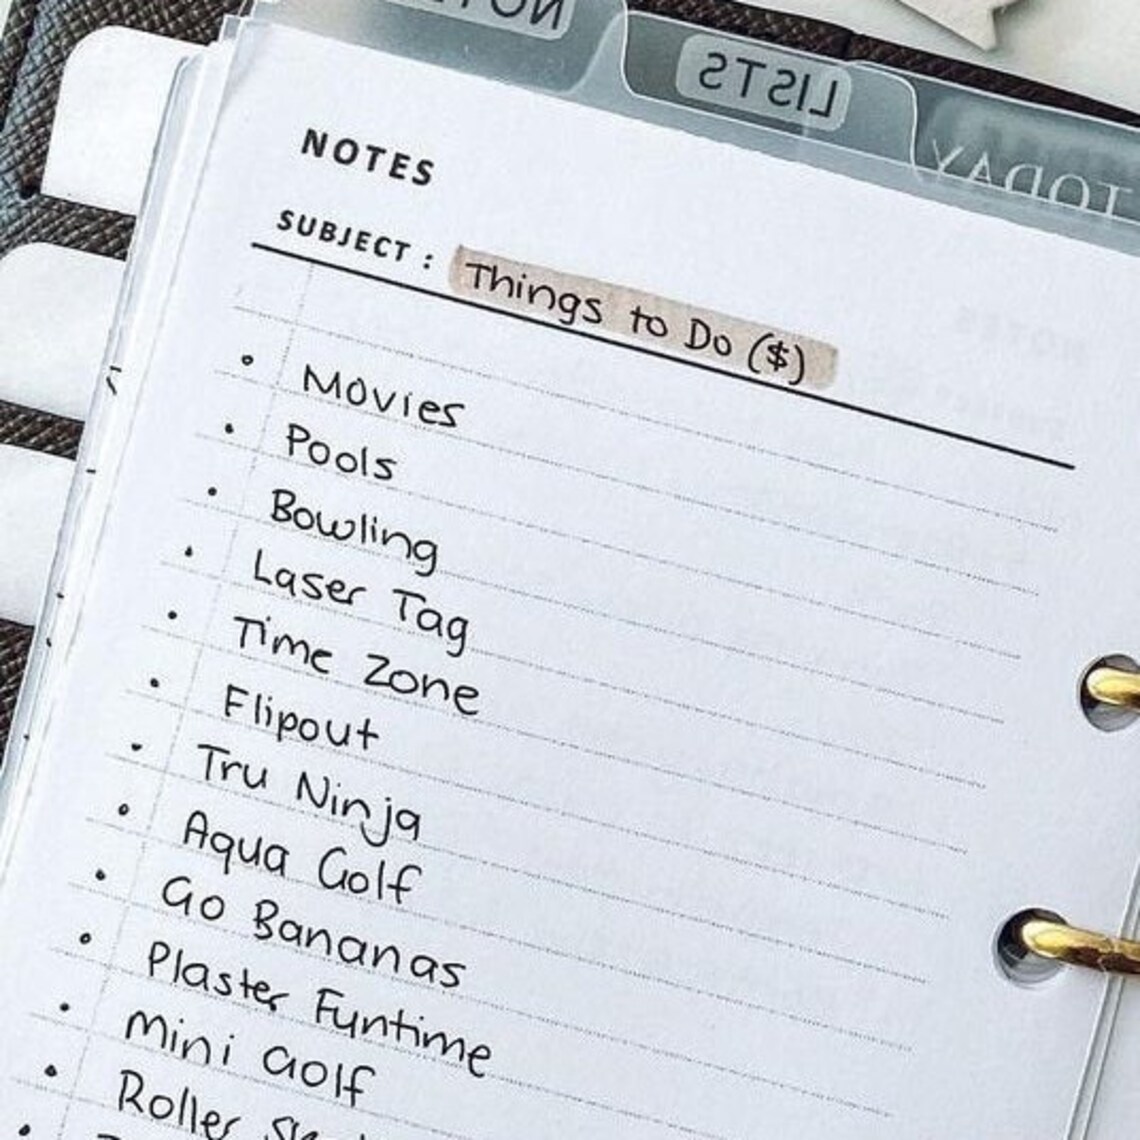 NOTES
LISTS
TODAY
NOTES
SUBJECT : Things to Do ($)
• Movies
• Pools
• Bowling
• Laser Tag
• Time Zone
• Flipout
• Tru Ninja
• Aqua Golf
• Go Bananas
• Plaster Funtime
• Mini Golf
• Roller